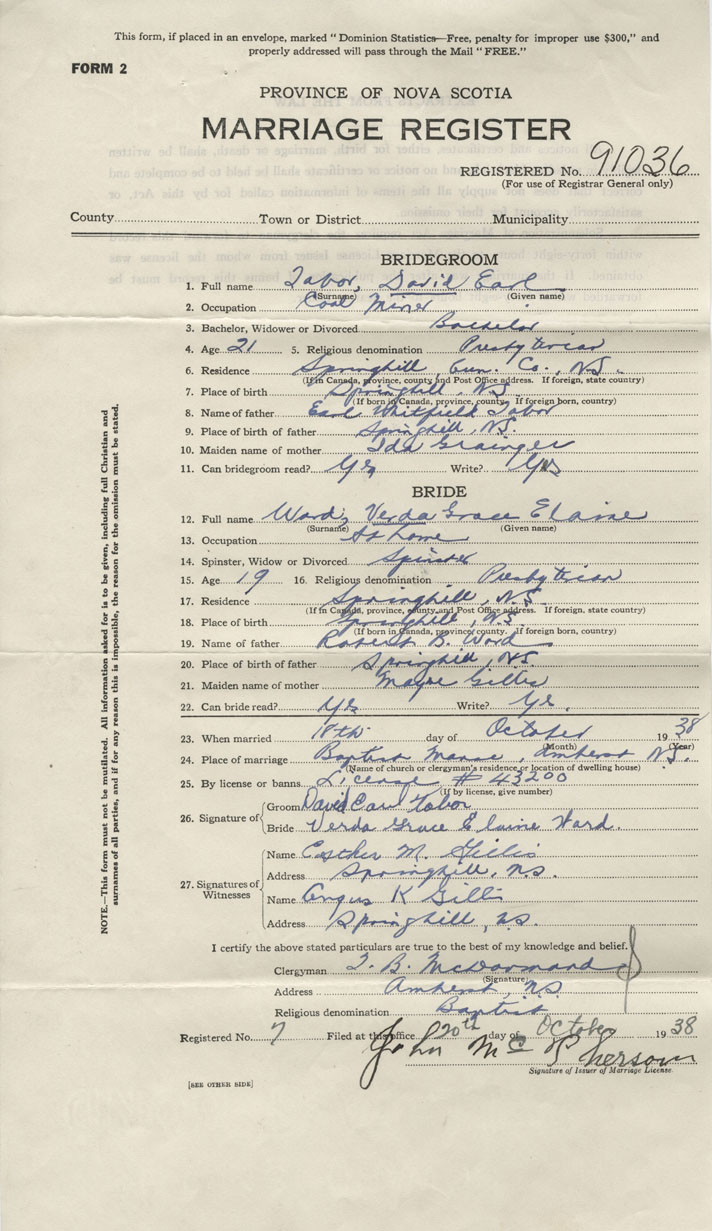 This form, if placed in an envelope, marked "Dominion Statistics—Free, penalty for improper use $300," and
properly addressed will pass through the Mail "FREE."
FORM 2
PROVINCE OF NOVA SCOTIA
MARRIAGE REGISTER
REGISTERED No. 91036
(For use of Registrar General only)
County Town or District Municipality
BRIDEGROOM
1. Full name Tabor, David Earl
(Surname) (Given name)
2. Occupation Coal Miner
3. Bachelor, Widower or Divorced Bachelor
4. Age 21 5. Religious denomination Presbyterian
6. Residence Springhill, Cum. Co., N.S.
(If in Canada, province, county and Post Office address. If foreign, state country)
7. Place of birth Springhill, N.S.
(If born in Canada, province, county. If foreign born, country)
8. Name of father Earl Whitfield Tabor
9. Place of birth of father Springhill, N.S.
10. Maiden name of mother Ida Grainger
11. Can bridegroom read? Yes Write? Yes
BRIDE
12. Full name Ward, Verda Grace Elaine
(Surname) (Given name)
13. Occupation At home
14. Spinster, Widow or Divorced Spinster
15. Age 19 16. Religious denomination Presbyterian
17. Residence Springhill, N.S.
(If in Canada, province, county and Post Office address. If foreign, state country)
18. Place of birth Springhill, N.S.
(If born in Canada, province, county. If foreign born, country)
19. Name of father Robert B. Ward
20. Place of birth of father Springhill, N.S.
21. Maiden name of mother Mayme Gillis
22. Can bride read? Yes Write? Yes.
23. When married 18th day of October 1938
(Month) (Year)
24. Place of marriage Baptist Manse, Amherst N.S.
(Name of church or clergyman's residence or location of dwelling house)
25. By license or banns License # 43200
(If by license, give number)
26. Signature of
Groom David Earl Tabor
Bride Verda Grace Elaine Ward.
27. Signatures of Witnesses
Name Esther M. Gillis
Address Springhill, N.S.
Name Angus K Gillis
Address Springhill, N.S.
I certify the above stated particulars are true to the best of my knowledge and belief.
Clergyman T. B. McDormand
(Signature)
Address Amherst, N.S.
Religious denomination Baptist
Registered No. 7 Filed at this office 20th day of October 1938
John McPherson
Signature of Issuer of Marriage License.
[SEE OTHER SIDE]
NOTE.—This form must not be mutilated. All information asked for is to be given, including full Christian and
surnames of all parties, and if for any reason this is impossible, the reason for the omission must be stated.